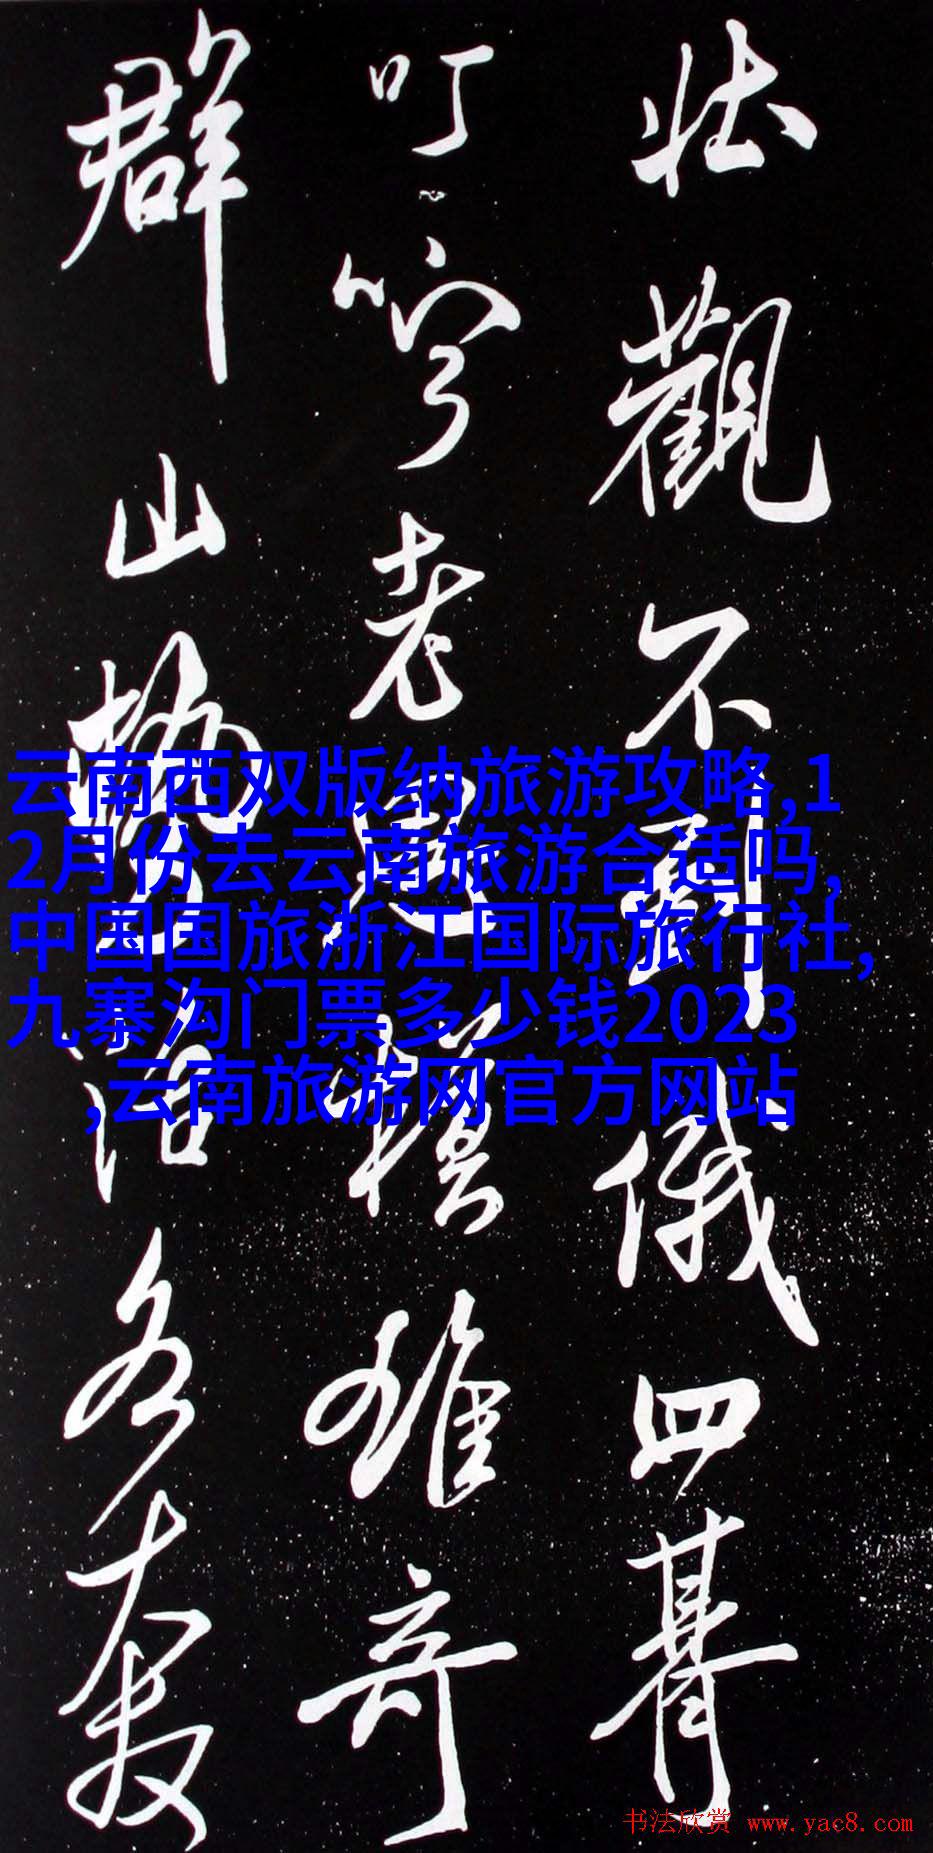 壮觀不到俄四朞
叮咛老模雄奇
群山各
云南西双版纳旅游攻略,1
2月份去云南旅游合适吗,
中国国旅浙江国际旅行社,
九寨沟门票多少钱2023
,云南旅游网官方网站
书法欣赏 www.yac8.com